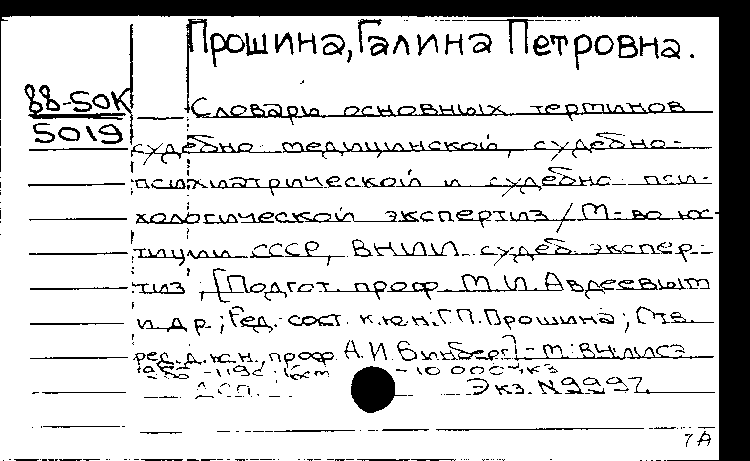 Прошина, Галина Петровна.
88-50К
5019
Словарь основных терминов
судебно-медицинской, судебно-
психиатрической и судебно-пси-
хологической экспертиз / М-во юс-
тиции СССР, ВНИИ судеб. экспер-
тиз; [Подгот. проф. М.И. Авдеевым
и др.; Ред.-сост. к.ю.н. Г.П. Прошина; Отв.
ред. д.ю.н., проф. А.И. Винберг]- М.: ВНИИСЭ,
-119с.; -10 000 экз
ДСП. Экз. N9997.
7А